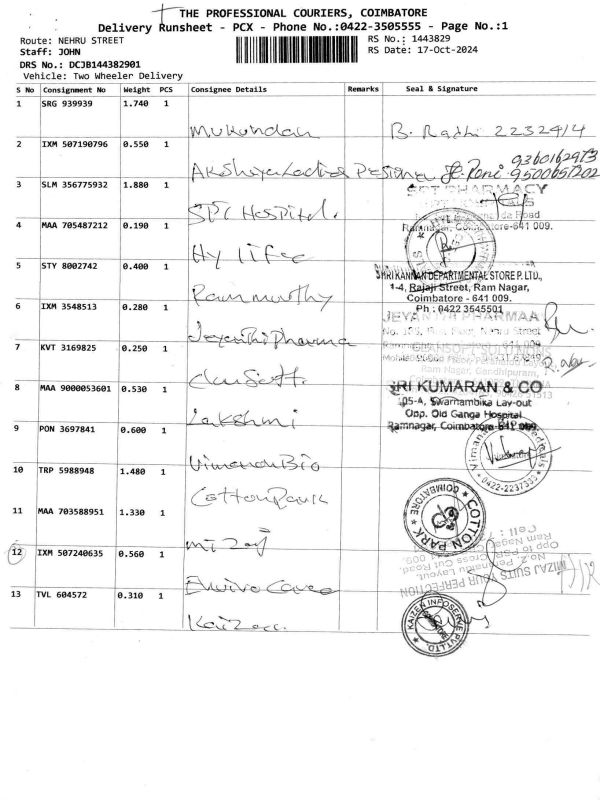 THE PROFESSIONAL COURIERS, COIMBATORE
Delivery Runsheet - PCX - Phone No.:0422-3505555 - Page No.:1
Route: NEHRU STREET
RS No.: 1443829
Staff: JOHN
RS Date: 17-Oct-2024
DRS No.: DCJB144382901
Vehicle: Two Wheeler Delivery
S No Consignment No Weight PCS Consignee Details Remarks Seal & Signature
1 SRG 939939 1.740 1
Mukundan B. Radhi 2232414
2 IXM 507190796 0.550 1
9360162973
Akshaya 9500657202
3 SLM 356775932 1.880 1
SPT PHARMACY
SPT Hospital.
Road
4 MAA 705487212 0.190 1
Ramnagar, Coimbatore-641 009.
Hy life
5 STY 8002742 0.400 1
SHRI KANNAN DEPARTMENTAL STORE P. LTD.,
1-4, Rajaji Street, Ram Nagar,
Rammurthy
Coimbatore - 641 009.
6 IXM 3548513 0.280 1
Ph : 0422 3545501
JEYANTHI PHARMAA
Nehru Street
Jeyanthi Pharma
7 KVT 3169825 0.250 1
Ram Nagar, Gandhipuram,
8 MAA 9000053601 0.530 1
SRI KUMARAN & CO
105-A, Swarnambika Lay-out
Opp. Old Ganga Hospital
Lakshmi
Ramnagar, Coimbatore-641 009.
9 PON 3697841 0.600 1
Vimanan Bio
0422-2237333
10 TRP 5988948 1.480 1
Cotton Park
COTTON PARK
COIMBATORE
11 MAA 703588951 1.330 1
Mizaj
MIZAJ SUITS YOUR PERFECTION
12 IXM 507240635 0.560 1
Enviro Care
13 TVL 604572 0.310 1
KAIZEN INFOSERVE PVT LTD.
Kaizen